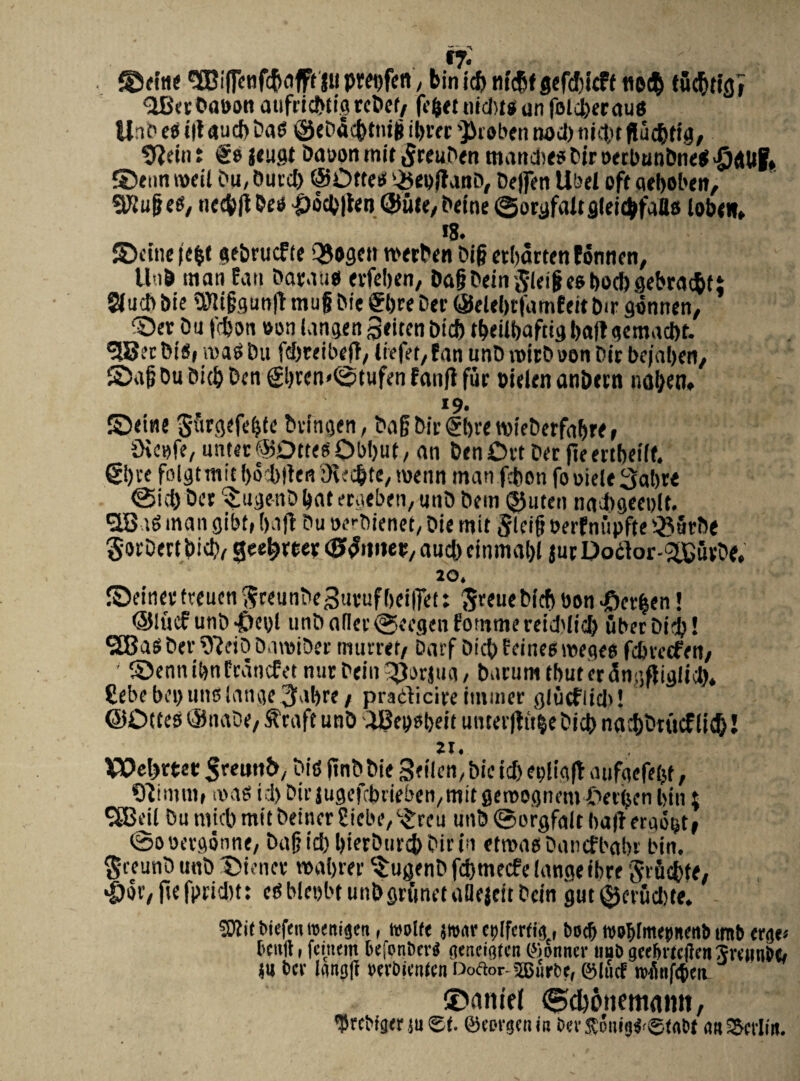 17.
Deine Wissenschafft zu preysen, bin ich nicht geschickt noch tüchtig;
Wer davon aufrichtig redet, setzet nichts an solcher aus
Und es ist auch das Gedächtniß ihrer Proben noch nicht flüchtig,
Nein: Es zeugt davon mit Freuden manches dir verbundnes Hauß.
Denn weil du, durch GOttes Beystand, dessen Ubel oft gehoben,
Muß es, nechst des Höchsten Güte, deine Sorgfalt gleichfalls loben.
18.
Deine jetzt gedruckte Bogen werden diß erhärten können,
Und man kan daraus ersehen, daß dein Fleiß es hoch gebracht;
Auch die Mißgunst muß die Ehre der Gelehrsamkeit dir gönnen,
Der du schon von langen Zeiten dich theilhaftig hast gemacht.
Wer dis, was du schreibest, lieset, kan und wird von dir bejahen,
Daß du dich den Ehren-Stufen kanst für vielen andern nahen.
19.
Deine Fürgesetzte bringen, daß dir Ehre wiederfahre,
Reyse, unter GOttes Obhut, an den Ort der sie ertheilt.
Ehre folgt mit höchsten Rechte, wenn man schon so viele Jahre
Sich der Tugend hat ergeben, und dem Guten nachgeeylt.
Was man gibt, hast du verdienet, die mit Fleiß verknüpfte Bürde
Fordert dich, geehrter Gönner, auch einmahl zur Doctor-Würde.
20.
Deiner treuen Freunde Zuruf heisset: Freue dich von Hertzen!
Glück und Heyl und aller Seegen komme reichlich über dich!
Was der Neid dawider murret, darf dich keines weges schrecken,
Denn ihn kräncket nur dein Vorzug, darum thut er ängstiglich.
Lebe bey uns lange Jahre, practicire immer glücklich!
GOttes Gnade, Kraft und Weysheit unterstütze dich nachdrücklich!
21.
Wehrter Freund, dis sind die Zeilen, die ich eyligst aufgesetzt,
Nimm, was ich dir zugeschrieben, mit gewognem Hertzen hin;
Weil du mich mit deiner Liebe, Treu und Sorgfalt hast ergötzt,
So vergönne, daß ich hierdurch dir in etwas danckbahr bin.
Freund und Diener wahrer Tugend schmecke lange ihre Früchte,
Hör, sie spricht: es bleybt und grünet allezeit dein gut Gerüchte.
Mit diesen wenigen, wolte zwar eylfertig, doch wohlmeynend und erge-
benst, seinem besonders geneigten Gönner und geehrtesten Freunde,
zu der längst verdienten Doctor-Würde, Glück wünschen
Daniel Schönemann,
Prediger zu St. Georgen in der Königs-Stadt an Berlin.